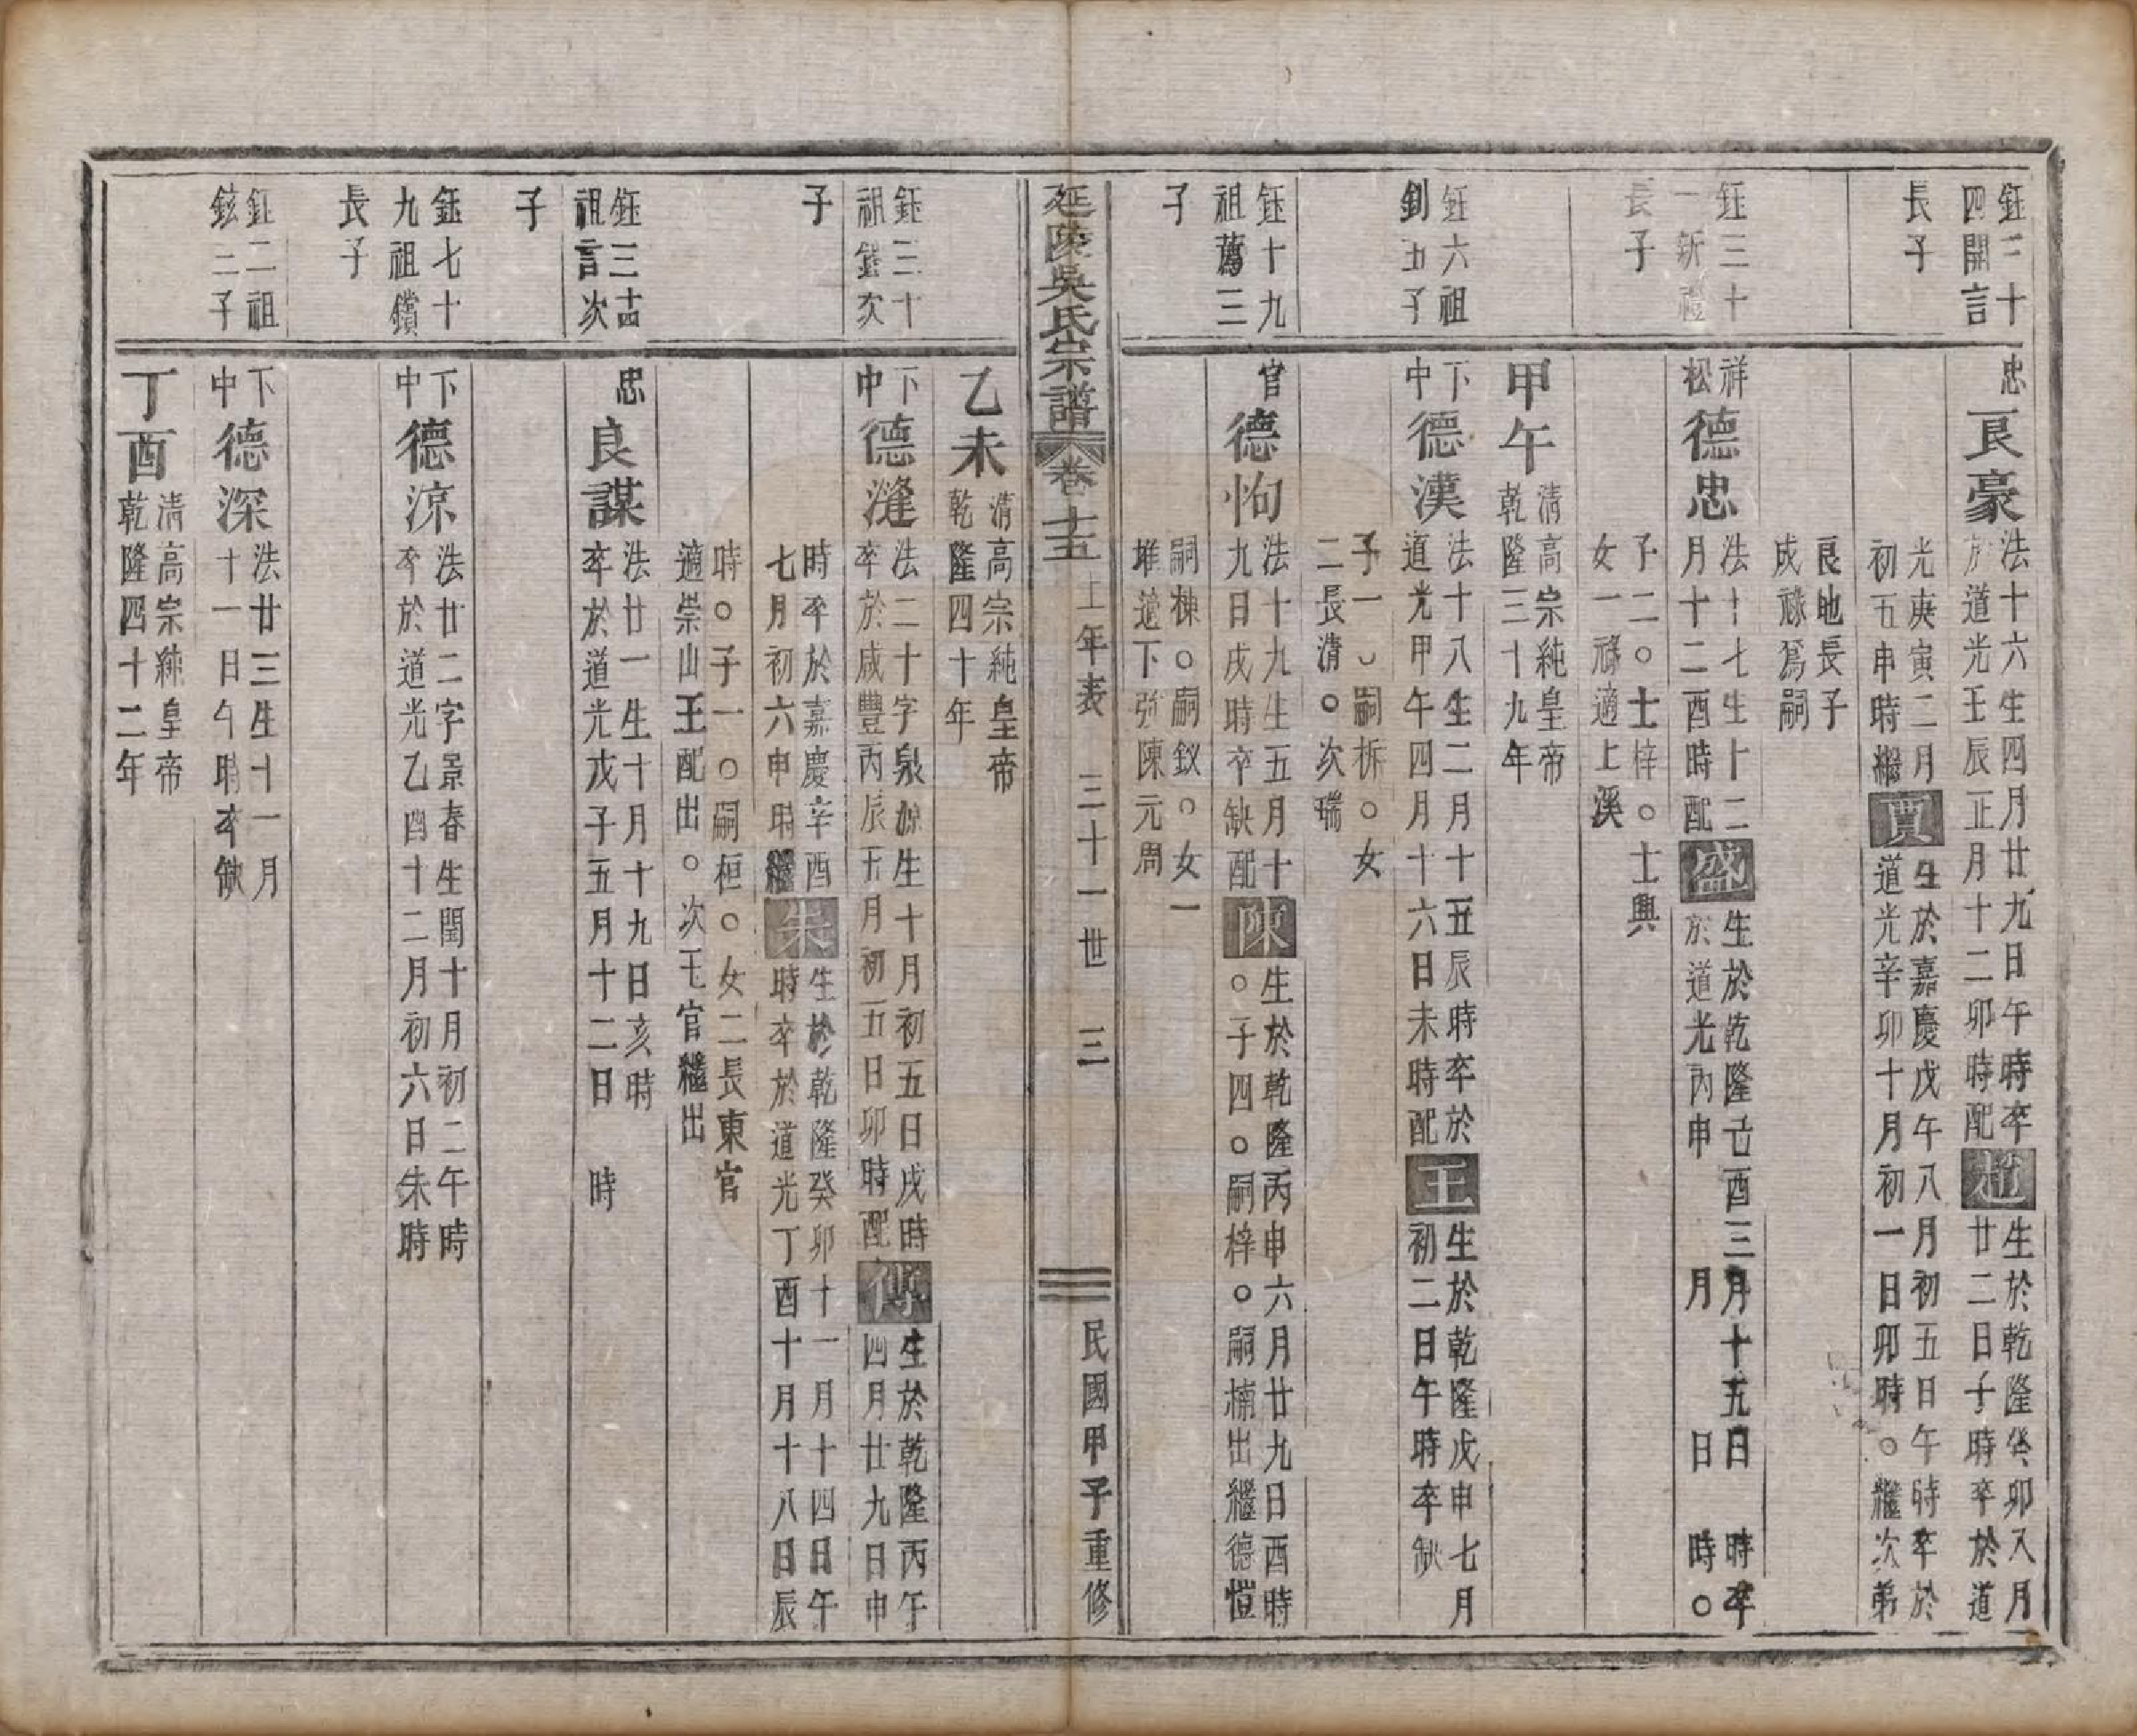 鈺三十
四開言
長子
忠
良豪
法十六生四月廿九日午時卒
於道光壬辰正月十二卯時配
趙
生於乾隆癸卯又月
廿二日子時卒於道
光庚寅二月
初五申時繼
賈
生於嘉慶戊午八月初五日午時卒於
道光辛卯十月初一日卯時○繼次弟
良地長子
成祿爲嗣
鈺三十
一新禮
長子
祥
松
德忠
法十七生十二
月十二酉時配
盛
生於乾隆己酉三月十五日 時卒
於道光丙申 月 日 時○
子二○士梓○士興
女一祿適上溪
甲午
清高宗純皇帝
乾隆三十九年
鈺六祖
釗五子
下
中
德漢
法十八生二月十五辰時卒於
道光甲午四月十六日未時配
王
生於乾隆戊申七月
初二日午時卒缺
子一○嗣柝○女
二長清○次瑞
鈺十九
祖薦三
子
官
德恂
法十九生五月十
九日戌時卒缺配
陳
生於乾隆丙申六月廿九日酉時
○子四○嗣梓○嗣楠出繼德愷
嗣棟○嗣釵○女一
堆適下強陳元周
延陵吳氏宗譜
卷十五
上年表 三十一世 三
民國甲子重修
乙未
清高宗純皇帝
乾隆四十年
鈺三十
祖鎹次
子
下
中
德漨
法二十字泉源生十月初五日戌時
卒於咸豐丙辰五月初五日卯時配
傅
生於乾隆丙午
四月廿九日申
時卒於嘉慶辛酉
七月初六申時繼
朱
生於乾隆癸卯十一月十四日午
時卒於道光丁酉十月十八日辰
時○子一○嗣桓○女二長東官
適崇山王配出○次毛官繼出
鈺三十四
祖言次
子
忠
良謀
法廿一生十月十九日亥時
卒於道光戊子五月十二日 時
鈺七十
九祖鑽
長子
下
中
德涼
法廿二字景春生閏十月初二午時
卒於道光乙酉十二月初六日朱時
鈺二祖
鉉二子
下
中
德深
法廿三生十一月
十一日午時卒缺
丁酉
清高宗純皇帝
乾隆四十二年